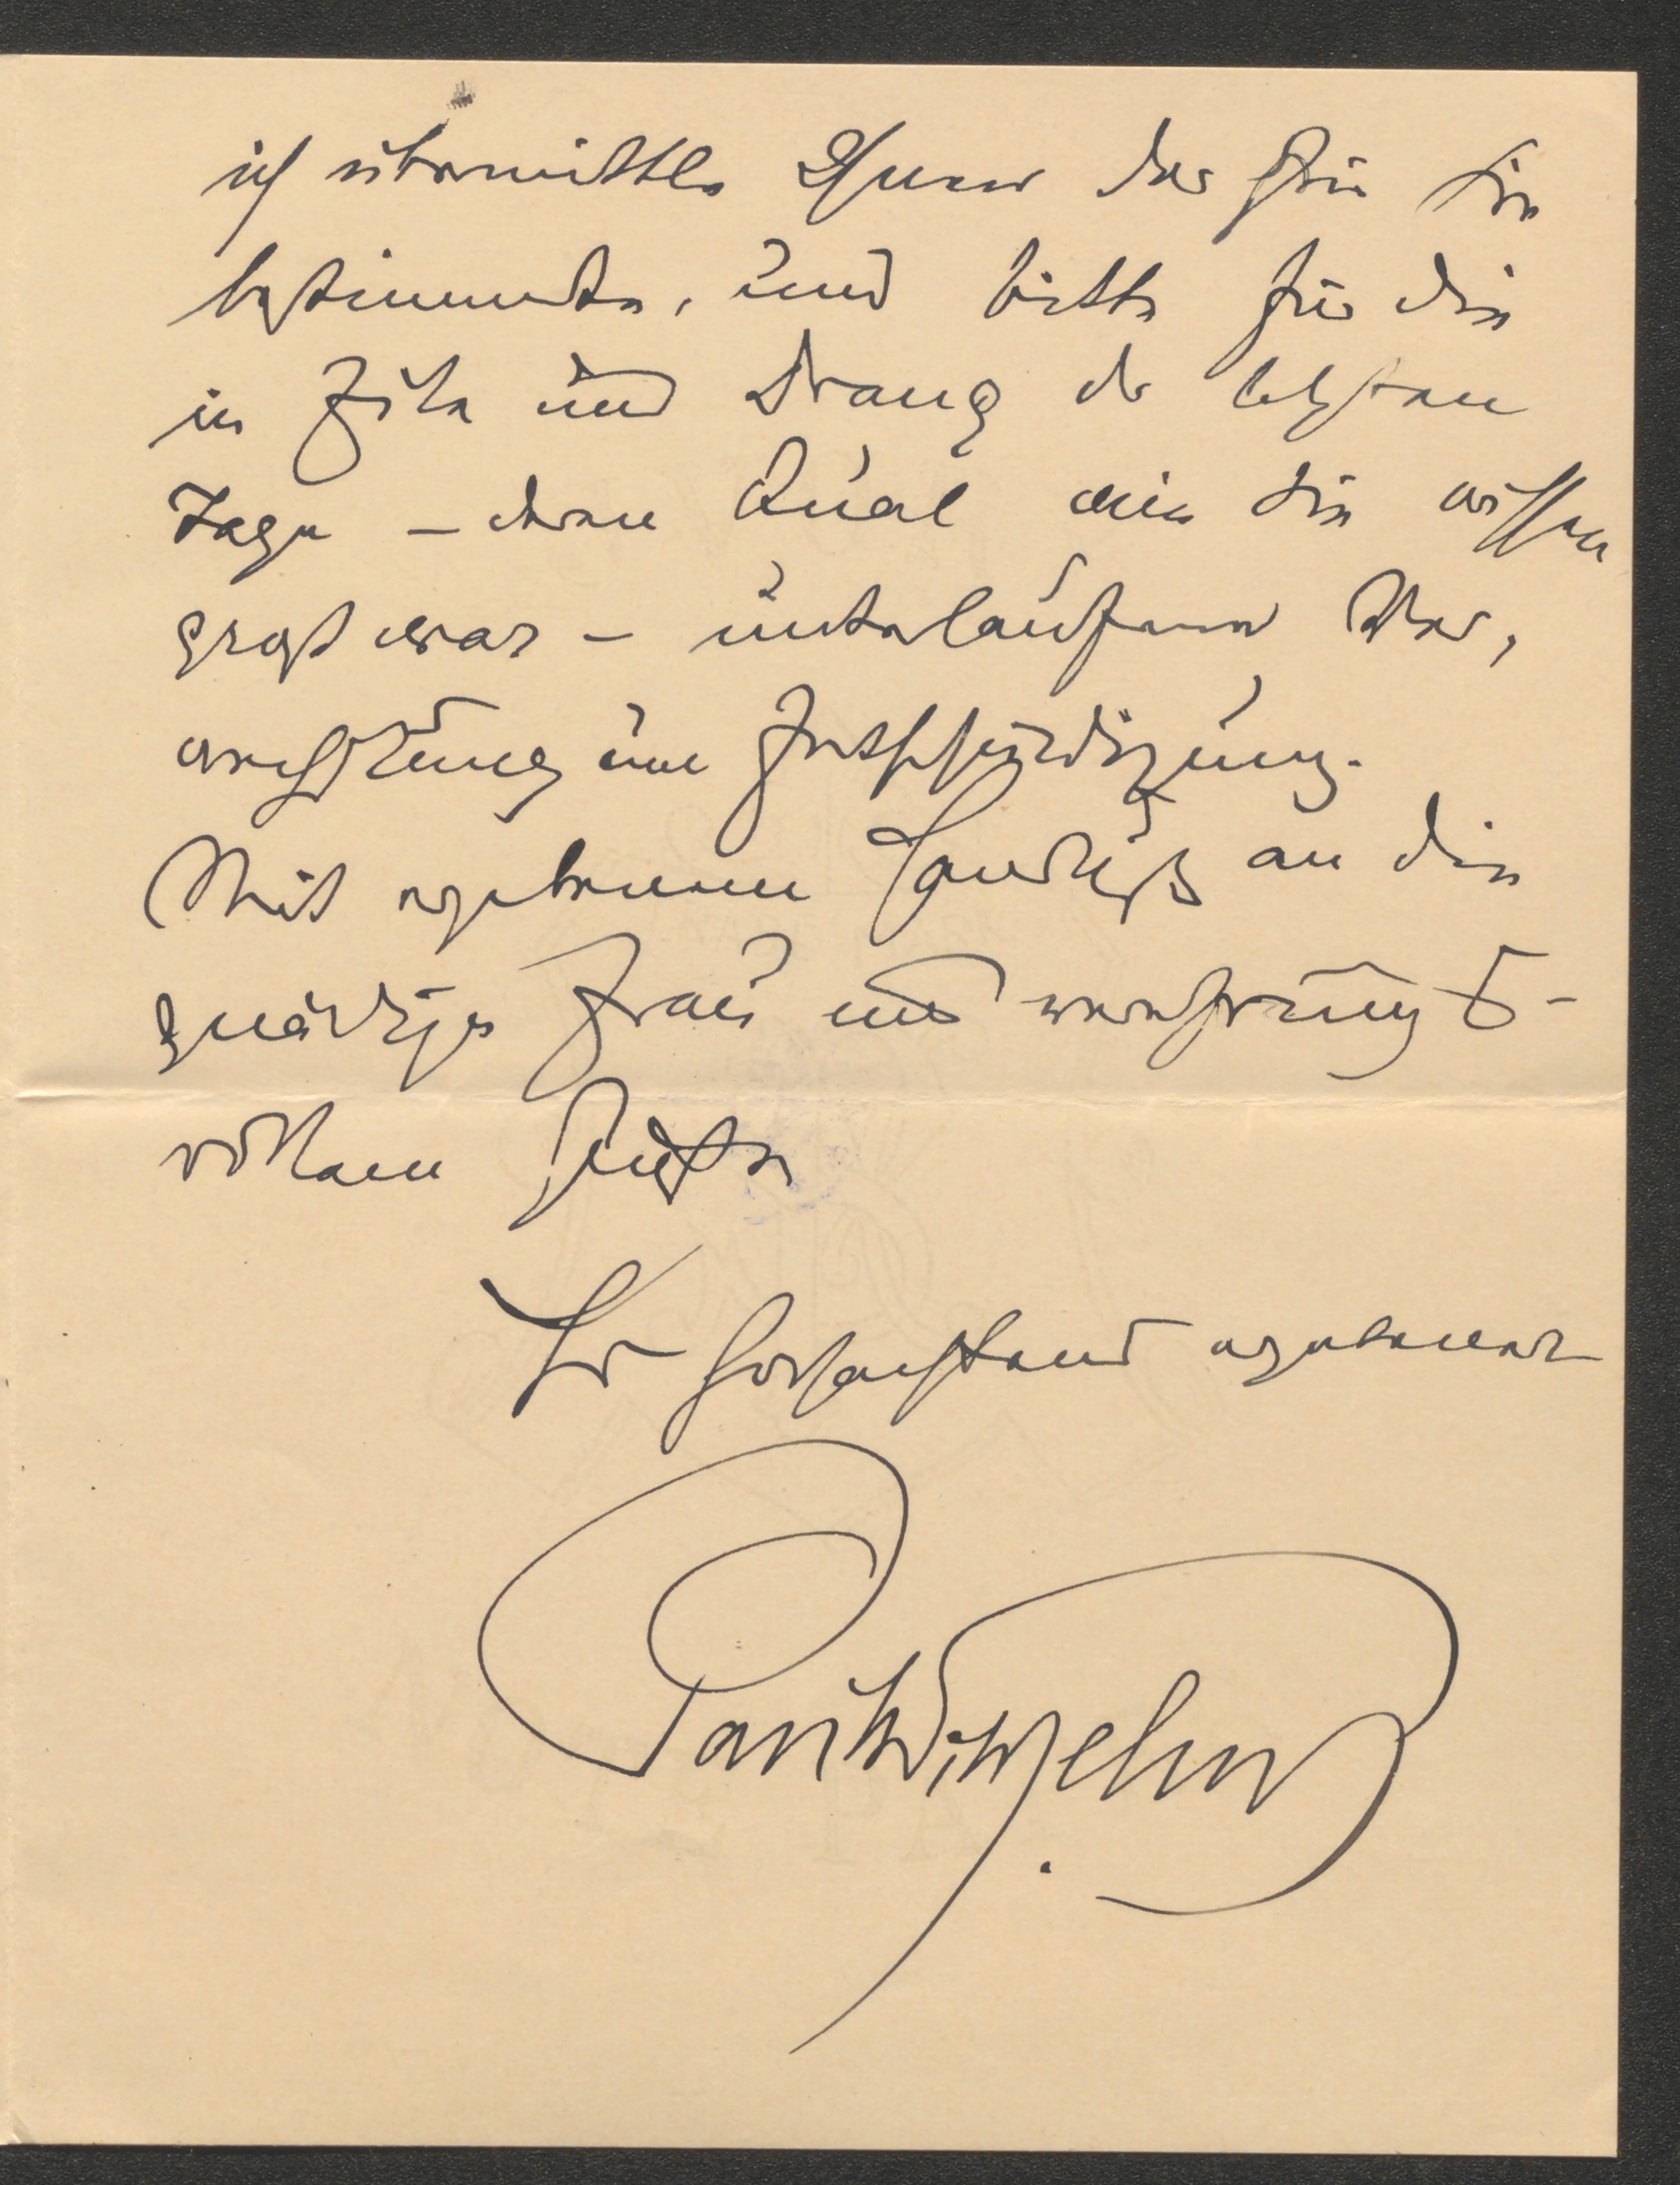 ich übermittle Ihnen das für Sie
bestimmte, und bitte für die
in Eile und Drang der letzten
Tage – deren Qual wie Sie wissen
groß war – unterlaufene Ver,
wechslung um Entschuldigung.
Mit ergebenem Handkuß an die
gnädige Frau und verehrungs-
vollem Gruße
Ihr hochachtend ergebener